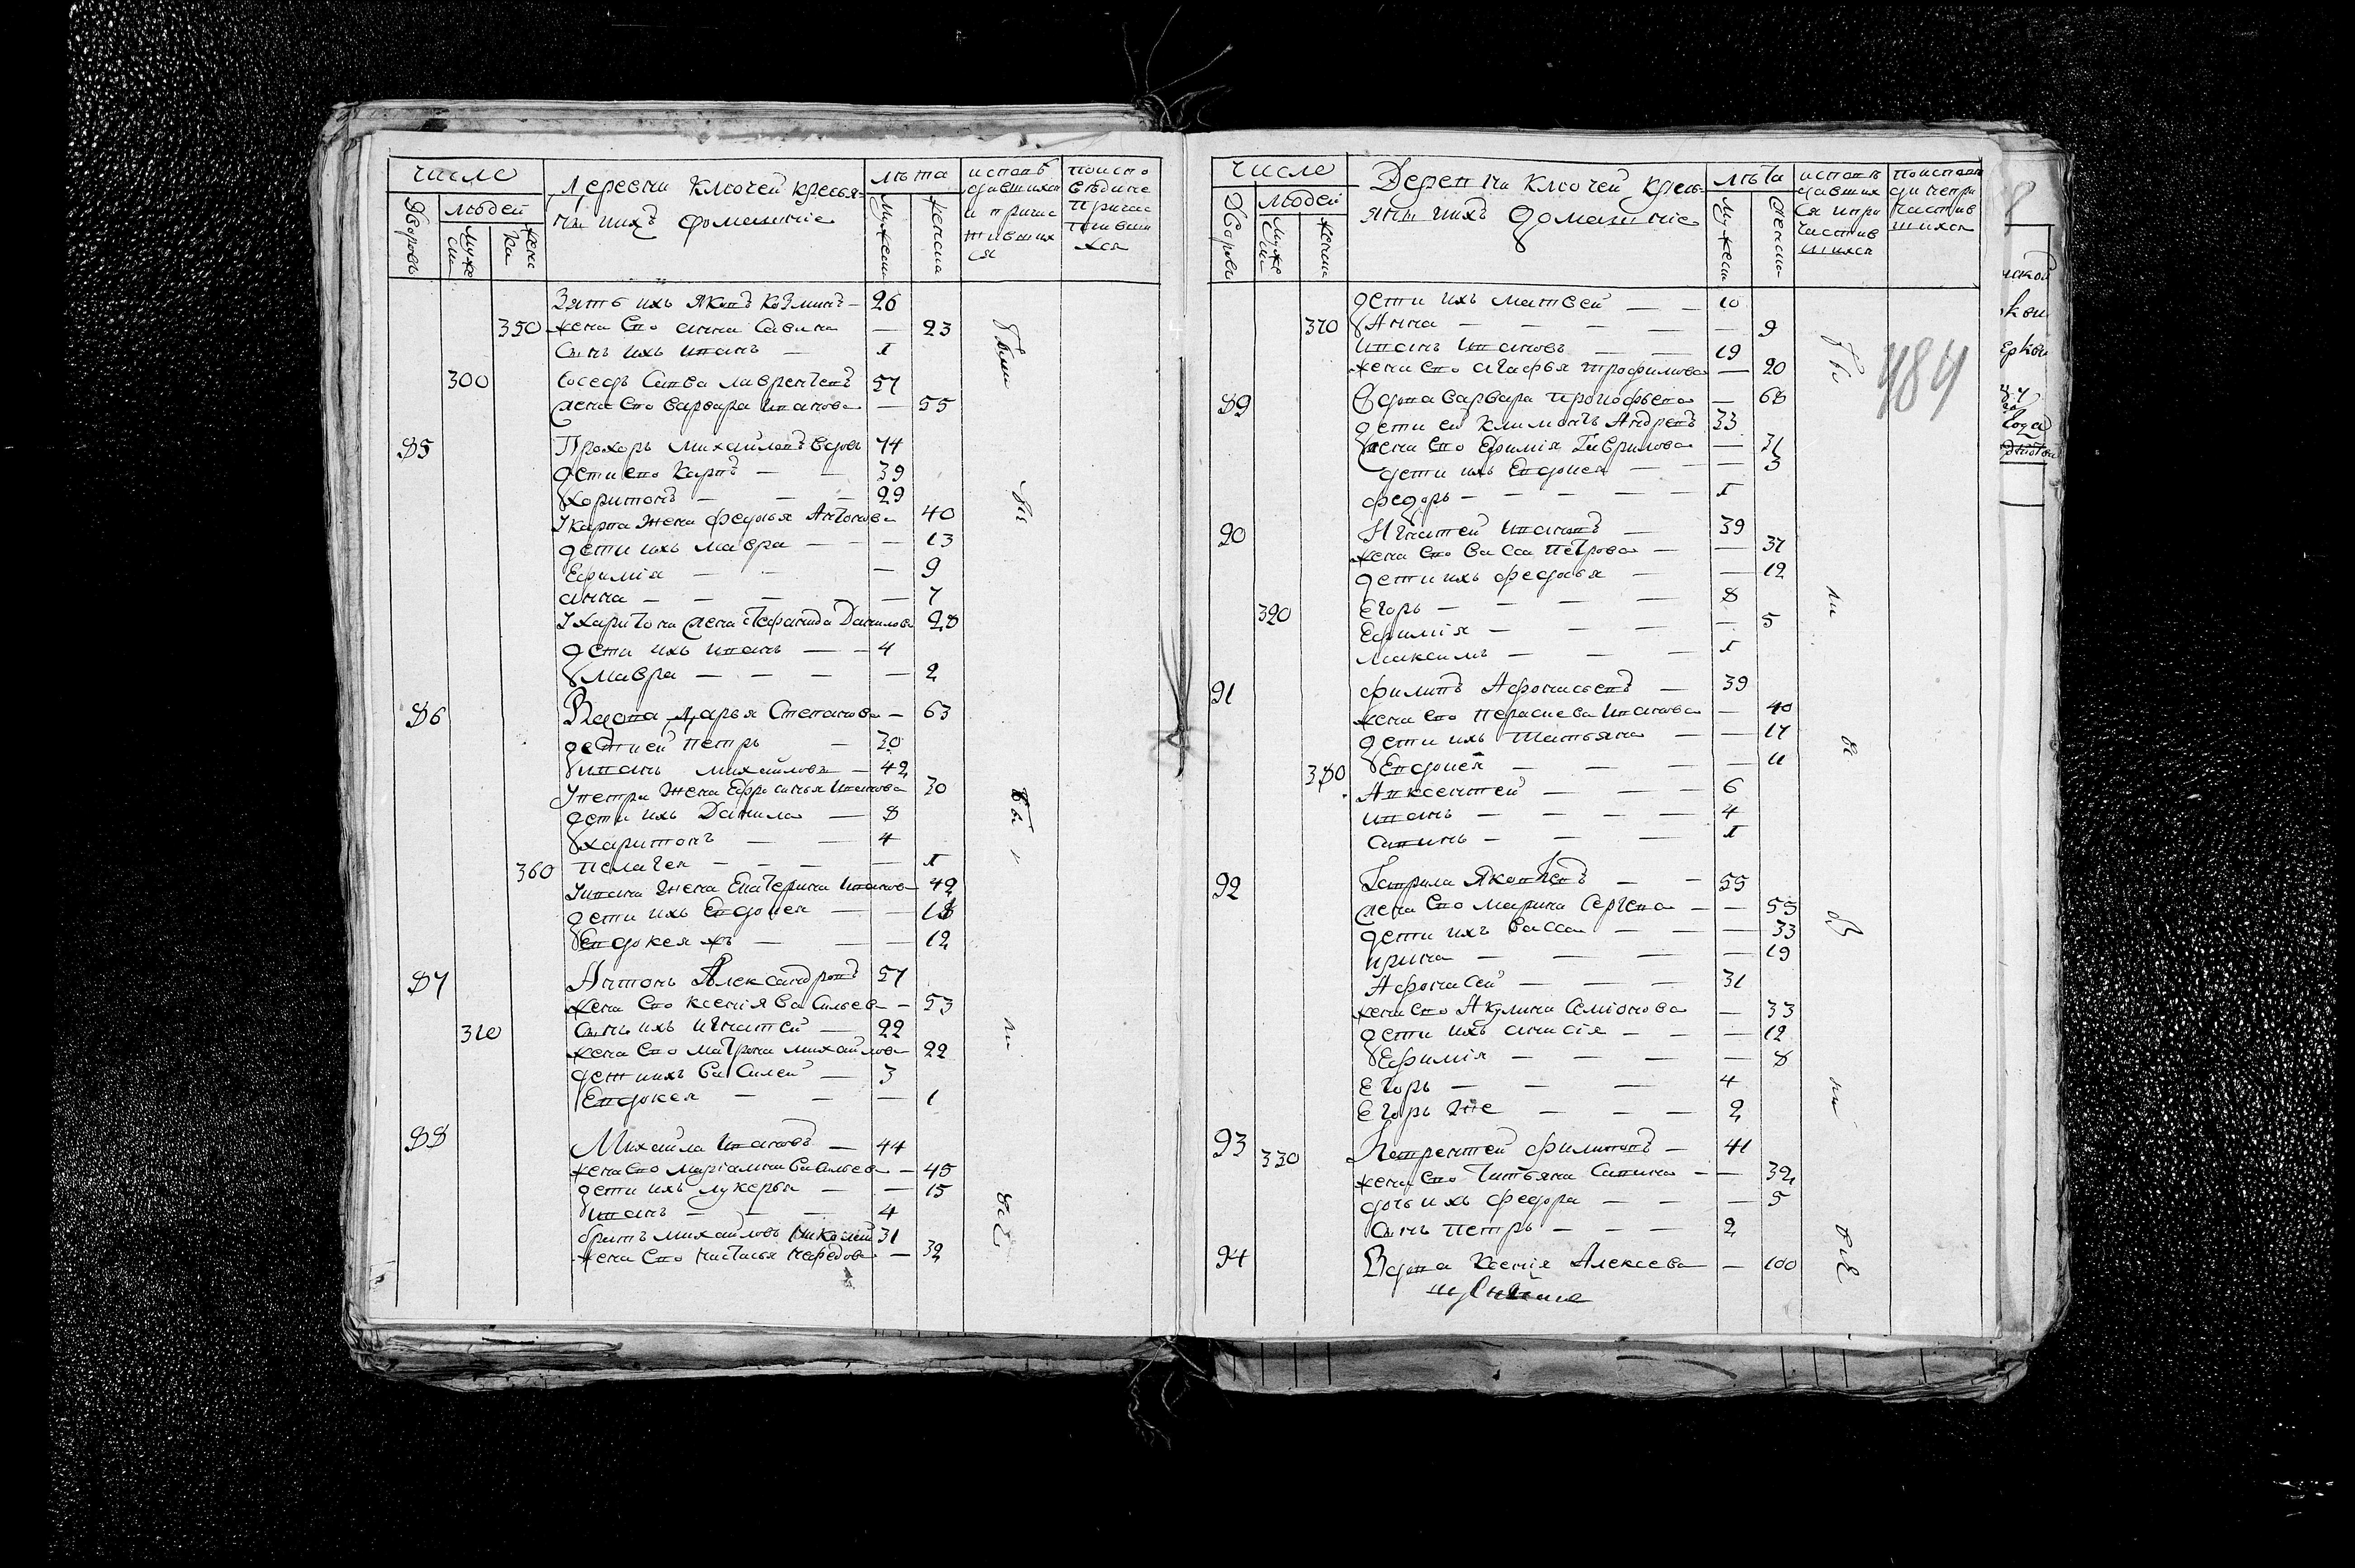 число
Деревни Ключей кресья-
ни ихъ домашние
лѣта
исповѣ
давшихся
и причас
тивших
ся
поиспо
вѣдине
причас
тивши
хся
Дворовъ
людей
муже
ски
жени
ки
мужеск
женска
Зять ихъ Яковъ Козминъ — 26
350 жена Ево анна Савина — 23
Сынъ ихъ Иванъ — 1
300 Соседъ Савва лаврентевъ 57
жена Ево варвара Иванова — 55
85 Прохоръ Михайловъ вдовъ 74
дети ево Карпъ — — 39
Харитонъ — — — 29
У карпа жена федосья Антонова 40
дети ихъ мавра — — — 13
Ефимія — — — 9
анна — — — — 7
У харитона жена стефанида Данилова 28
дети ихъ иванъ — — 4
мавра — — — — 2
86 Вдова дарья Степанова — 63
дети ей петръ — 30
иванъ михайловы — 42
У петра жена Ефросинья Иванова 30
дети ихъ Данила — 8
харитонъ — — 4
360 пелагея — — — — 1
У ивана жена Екатерина иванова 42
дети ихъ Евдокея — — 18
Евдокея жъ — — — 12
87 Антонъ Александровъ 57
жена Ево ксенія васильева — 53
310 сынъ ихъ игнатей — 22
жена Ево матрона михайлова 22
дети ихъ василей — 3
Евдокея — — — 1
88 Михайла Ивановъ — 44
жена Ево маріамна васильева — 45
дети ихъ лукерья — — 15
иванъ — — — 4
братъ михайловъ Николай 31
жена Ево настасья — 32
были
бы
бы
ли
всѣ
число
Деревни Ключей крес-
яни ихъ домашние
лѣта
исповѣ
давших
ся и при
частив
шихся
поиспов
ди непри
частив
шихся
Дворовъ
людей
муже
ски
женски
мужеск
женска
484
дети ихъ матвей — — 10
370 Анна — — — — — 9
иванъ ивановъ — — 19
жена Ево агафья трофимова — 20
89 Вдова варвара прокофьева — 68
дети ей климонтъ Андревъ 33
жена Ево Ефимія Гаврилова — 31
дети ихъ Евдокея — — 3
федоръ — — — — — 1
90 Игнатей Ивановъ — 39
жена Ево васса петрова — — 37
дети ихъ федосья — — 12
320 егоръ — — — — 8
Ефимія — — — — 5
максимъ — — — 1
91 филипъ Афонасьевъ — 39
жена Ево параскева иванова — 40
дети ихъ татьяна — — 17
380 Евдокея — — — — 11
Авксентей — — — 6
иванъ — — — — 4
савинъ — — — 1
92 Гаврила Яковлевъ — — 55
жена Ево марина Сергева — — 55
дети ихъ васса — — — 33
ирина — — — — 19
Афонасей — — — 31
жена Ево Акулина Семіонова — 33
дети ихъ анисія — — — 12
Ефимія — — — — 8
егоръ — — — 4
егоръ же — — — 2
93 330 Лаврентей филиповъ — 41
жена Ево татьяна Савина — — 32
дочь ихъ федора — — — 5
Сынъ петръ — — — 2
94 Вдова Ксенія Алексеева — 100
бы
ли
ли
всѣ